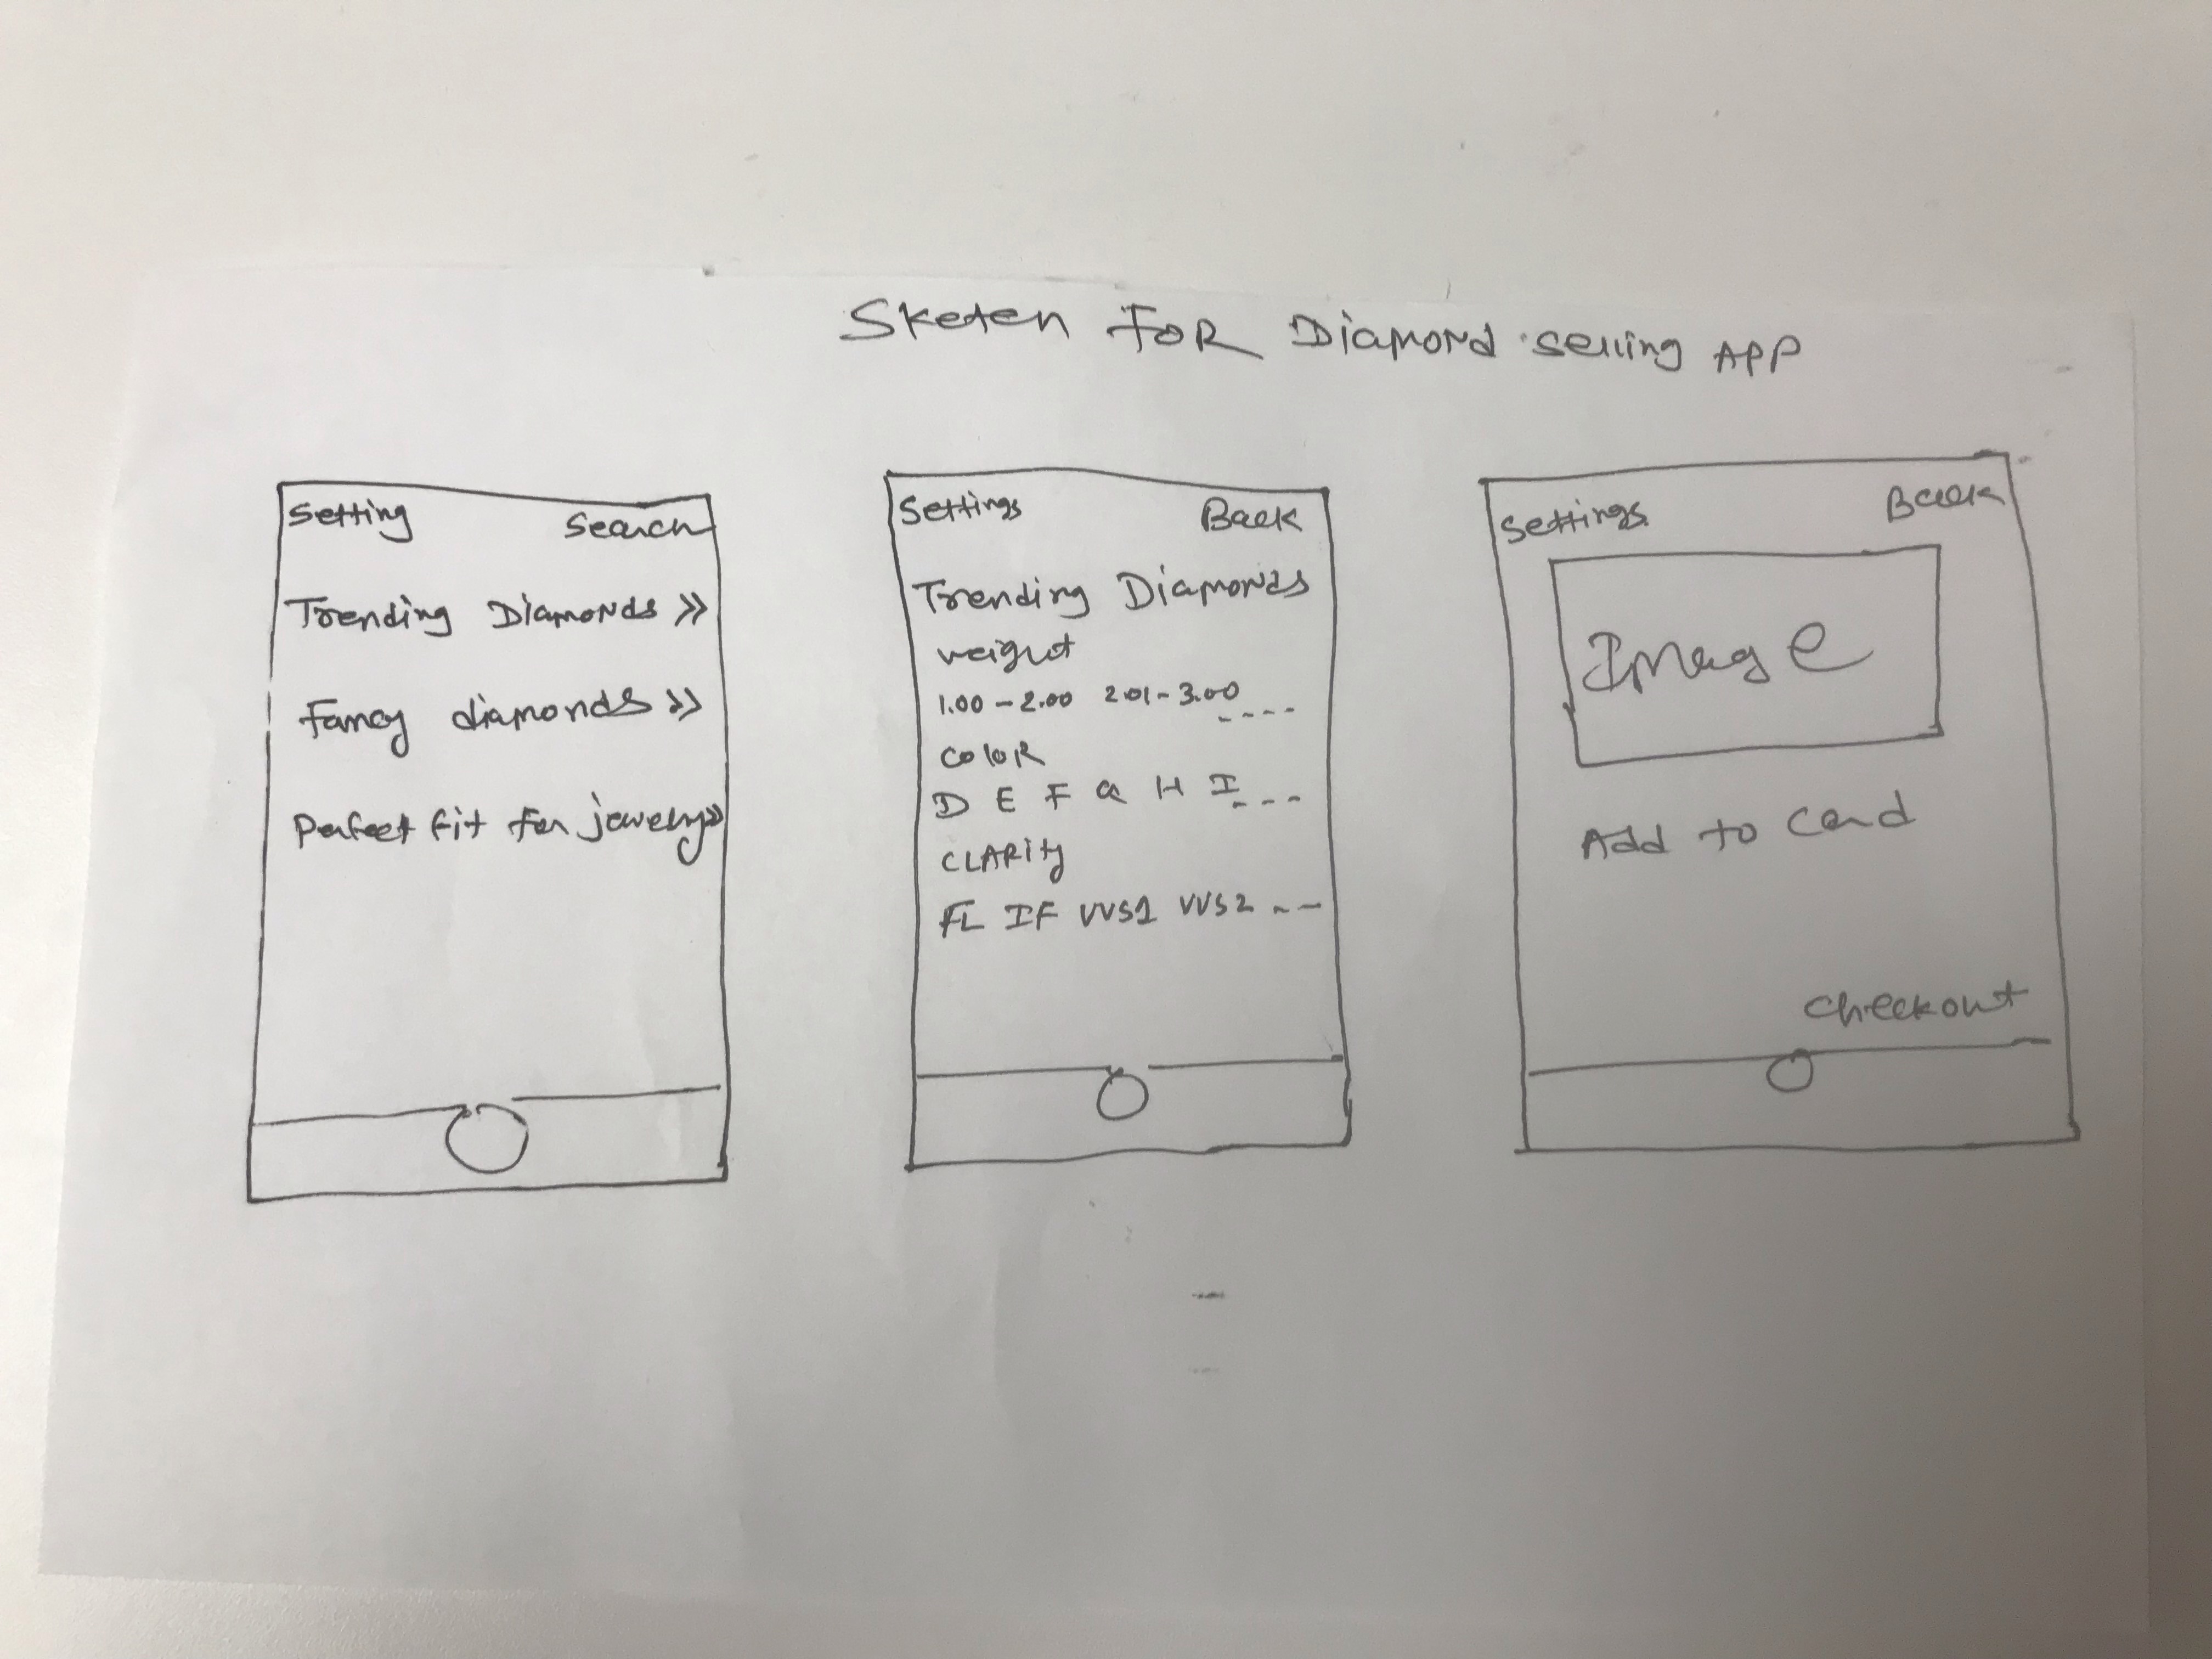 Sketch For Diamond selling App
Setting Search
Trending Diamonds >>
fancy diamonds >>
Perfect fit for jewelry >>
Settings Back
Trending Diamonds
weight
1.00-2.00 2.01-3.00 ----
COLOR
D E F G H I ----
CLARity
FL IF VVS1 VVS2 --
Settings Back
Image
Add to Card
Checkout